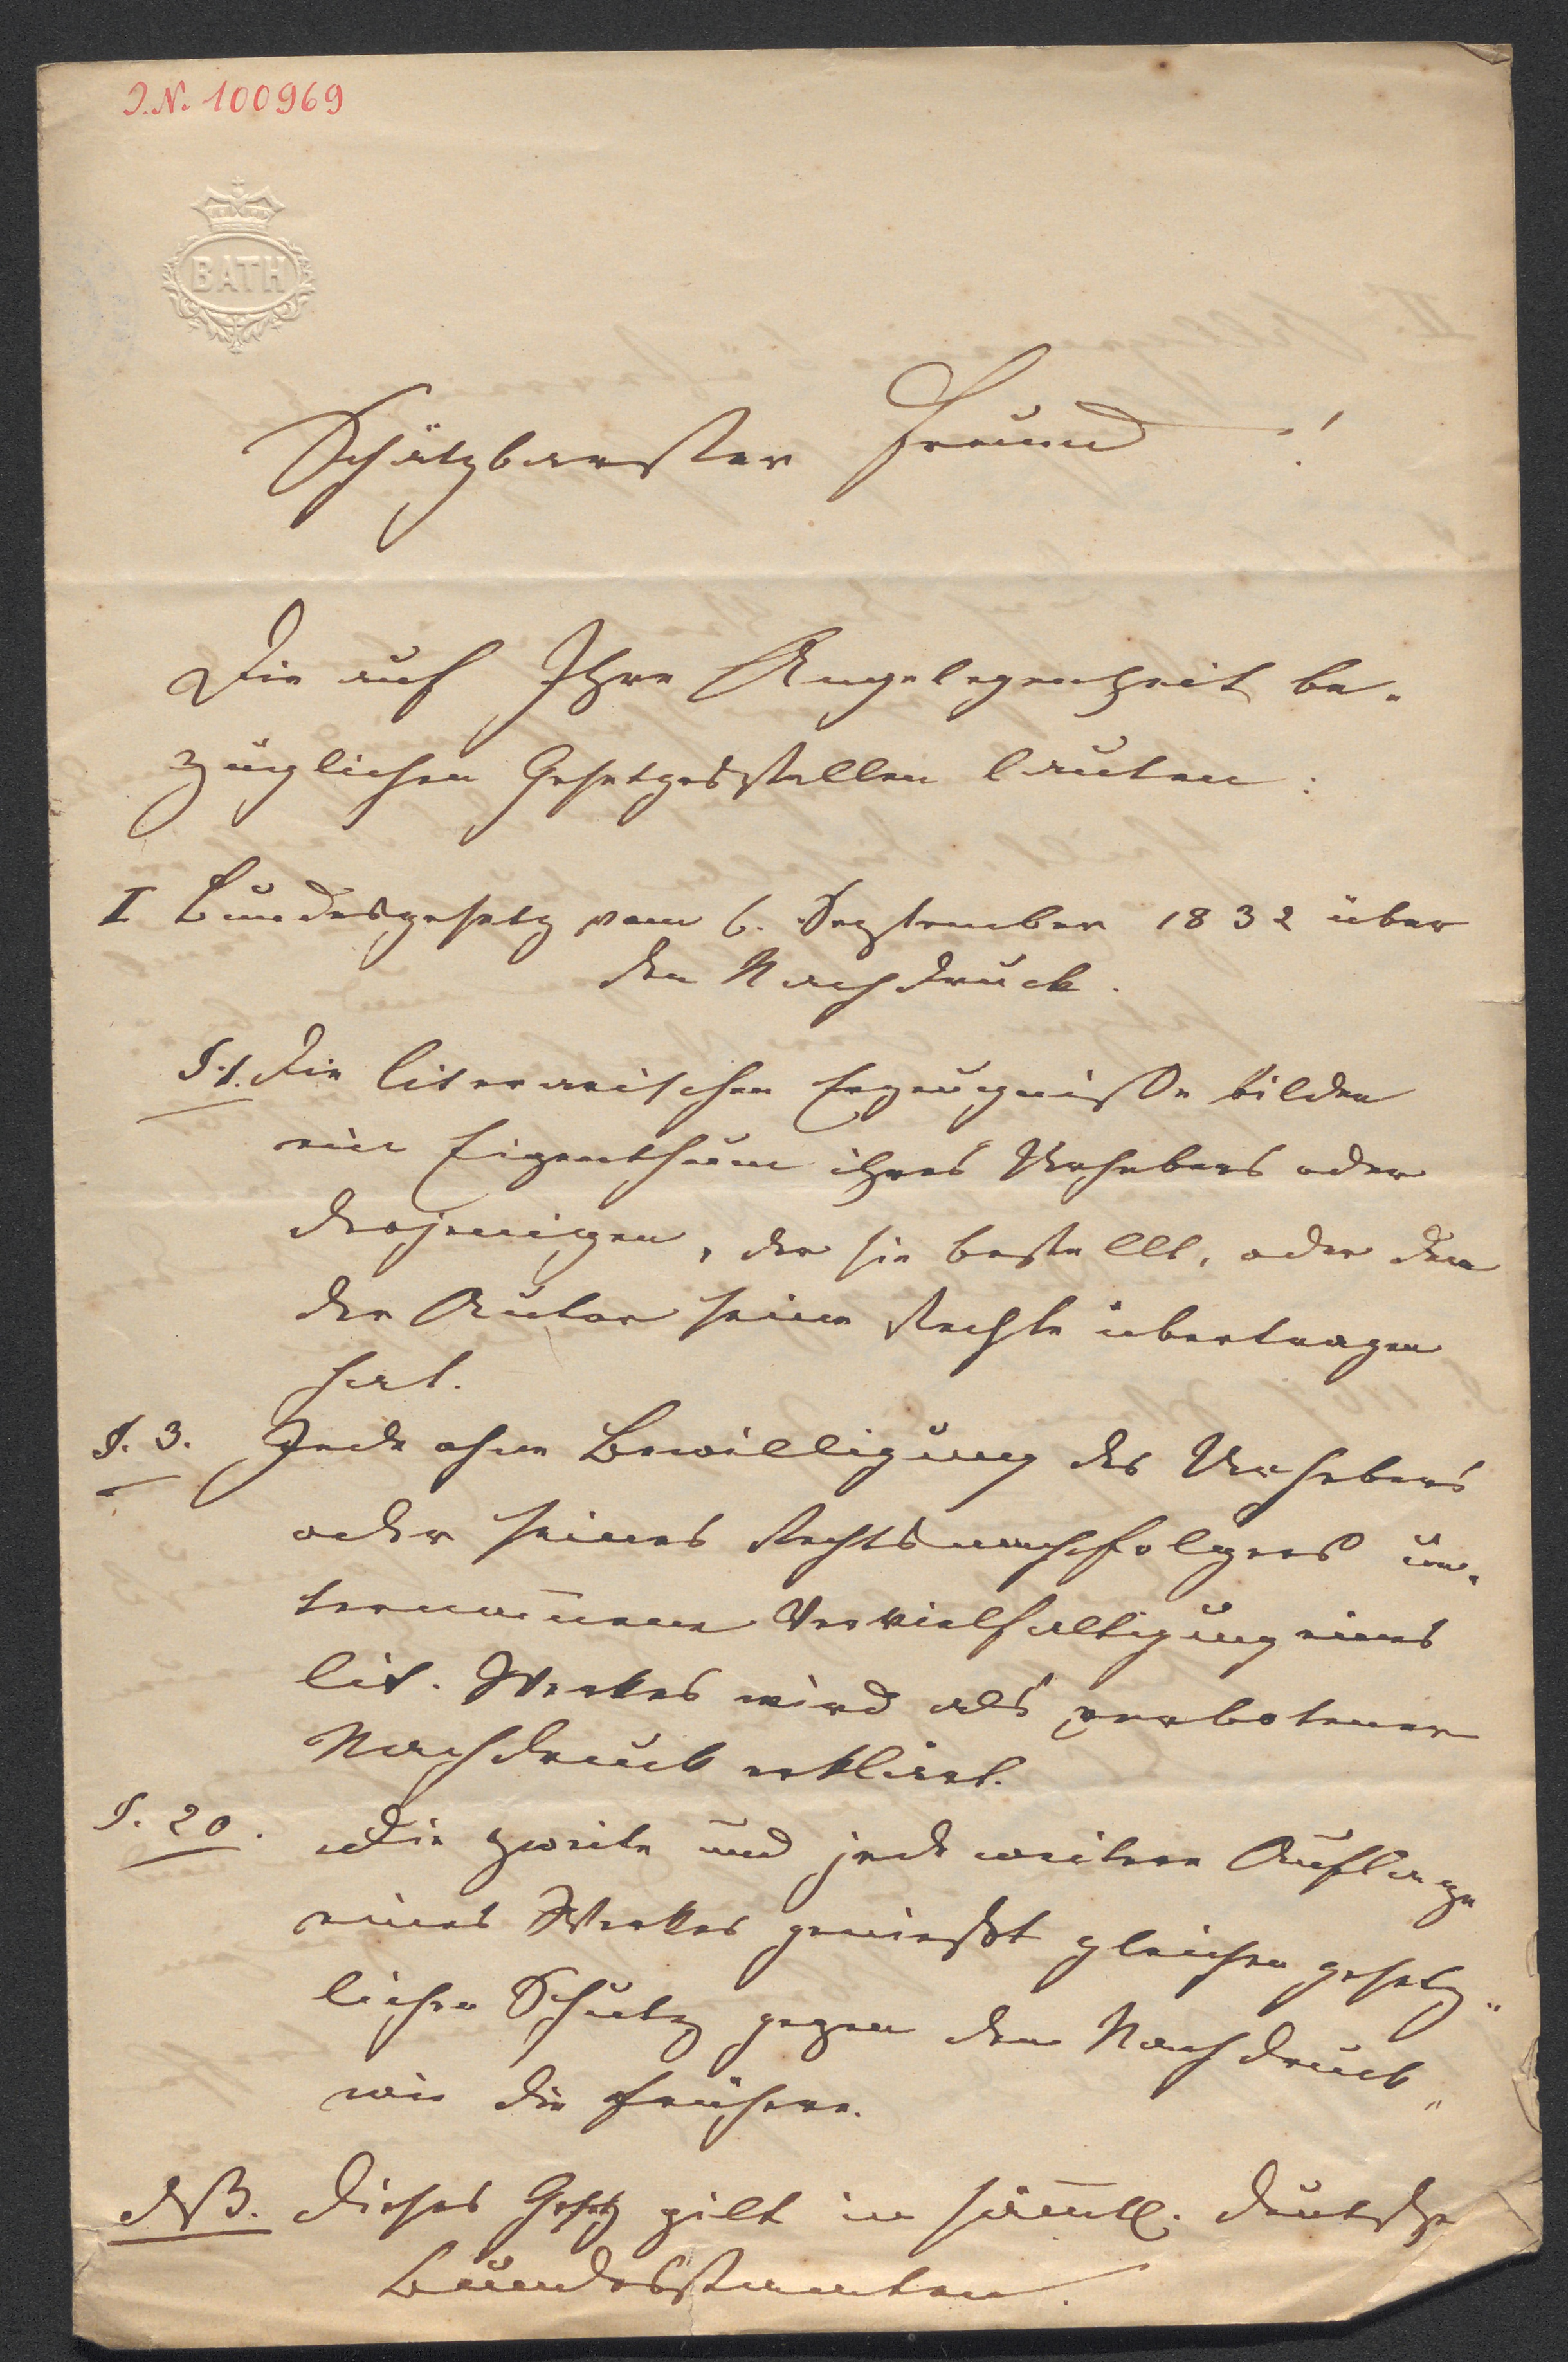 I.N. 100969
BATH
Schätzbarster Freund!
Die auf Ihre Angelegenheit be-
züglichen Gesetzesstellen lauten:
I Bundesgesetz vom 6. September 1832 über
den Nachdruck.
§.1. Die literarischen Erzeugnisse bilden
ein Eigenthum ihres Urhebers oder
desjenigen, der sie bestellt, oder dem
der Autor seine Rechte übertragen
hat.
§. 3. Jede ohne Bewilligung des Urhebers
oder seines Rechtsnachfolgers un-
ternom̄ene Vervielfältigung eines
lit. Werkes wird als verbotener
Nachdruck erklärt.
§. 20. Die zweite und jede weitere Auflage
eines Werkes genießt gleichen gesetz-
lichen Schutz gegen den Nachdruck,
wie die frühere.
NB. Dieses Gesetz gilt in säm̄tl. deutschen
Bundesstaaten.